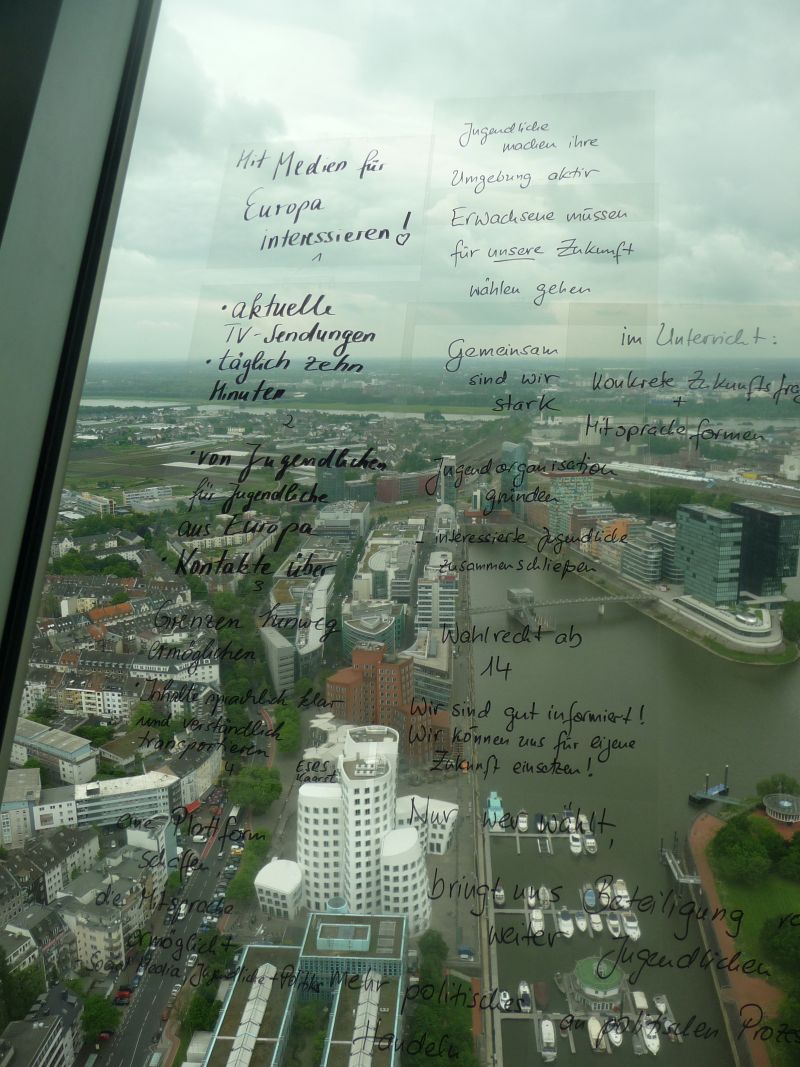 Mit Medien für
Europa
interessieren!
1
• aktuelle
TV-Sendungen
• täglich zehn
Minuten
2
• von Jugendlichen
für Jugendliche
aus Europa
• Kontakte über
3
Grenzen hinweg
ermöglichen
• Inhalte sprachlich klar
und verständlich
transportieren
4
eine Plattform
schaffen
die Mitsprache
ermöglicht
- Social Media, Jugendliche + Politik
Jugendliche
machen ihre
Umgebung aktiv
Erwachsene müssen
für unsere Zukunft
wählen gehen
Gemeinsam
sind wir
stark
Jugendorganisation
gründen
- interessierte Jugendliche
zusammenschließen
Wahlrecht ab
14
Wir sind gut informiert!
Wir können uns für eigene
Zukunft einsetzen!
Nur wer wählt,
bringt uns
weiter
Mehr politisches
Handeln
im Unterricht:
Konkrete Zukunftsfrag
+
Mitspracheformen
Beteiligung
Jugendlichen
an politischen Proze